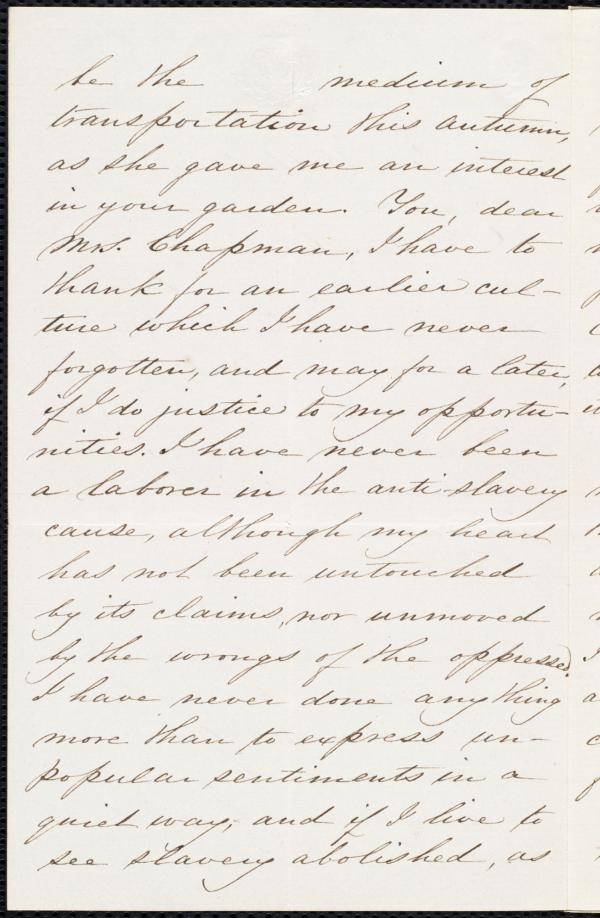 be the medium of
transportation this autumn,
as she gave me an interest
in your garden. You, dear
Mrs. Chapman, I have to
thank for an earlier cul-
ture which I have never
forgotten, and may for a later,
if I do justice to my opportu-
nities. I have never been
a laborer in the anti-slavery
cause, although my heart
has not been untouched
by its claims, nor unmoved
by the wrongs of the oppressed.
I have never done anything
more than to express un-
popular sentiments in a
quiet way, and if I live to
see slavery abolished, as